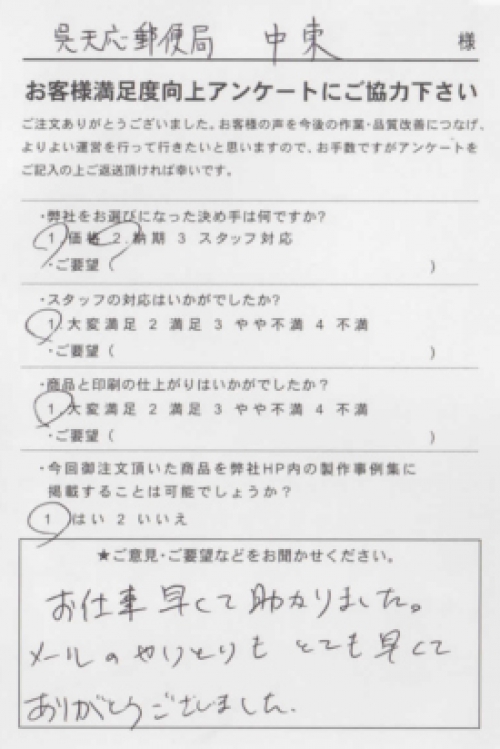 呉天応郵便局 中東 様
お客様満足度向上アンケートにご協力下さい
ご注文ありがとうございました。お客様の声を今後の作業・品質改善につなげ、
よりよい運営を行って行きたいと思いますので、お手数ですがアンケートを
ご記入の上ご返送頂ければ幸いです。
・弊社をお選びになった決め手は何ですか?
1.価格 2.納期 3 スタッフ対応
・ご要望( )
・スタッフの対応はいかがでしたか?
1.大変満足 2 満足 3 やや不満 4 不満
・ご要望( )
・商品と印刷の仕上がりはいかがでしたか?
1.大変満足 2 満足 3 やや不満 4 不満
・ご要望( )
・今回御注文頂いた商品を弊社HP内の製作事例集に
掲載することは可能でしょうか?
1 はい 2 いいえ
★ご意見・ご要望などをお聞かせください。
お仕事早くて助かりました。
メールのやりとりもとても早くて
ありがとうございました.